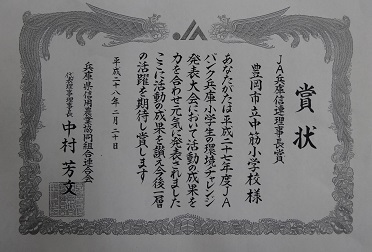 JA
賞状
JA兵庫信連理事長賞
豊岡市立中筋小学校様
あなたがたは平成二十七年度JA
バンク兵庫小学生の環境チャレンジ
発表大会において活動の成果を
力を合わせ元気に発表されました
ここに活動の成果を讃え今後一層
の活躍を期待し賞します
平成二十八年二月二十日
兵庫県信用農業協同組合連合会
代表理事理事長 中村芳文